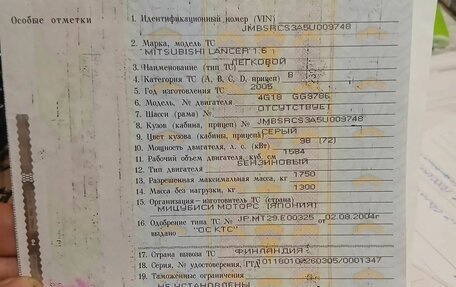 Особые отметки
1. Идентификационный номер (VIN)
JMBSRCS3A5U009748
2. Марка, модель ТС
MITSUBISHI LANCER 1.6
3. Наименование (тип ТС) ЛЕГКОВОЙ
4. Категория ТС (А, В, С, D, прицеп) B
5. Год изготовления ТС 2005
6. Модель, № двигателя 4G18 GG9786
7. Шасси (рама) № ОТСУТСТВУЕТ
8. Кузов (кабина, прицеп) № JMBSRCS3A5U009748
9. Цвет кузова (кабина, прицепа) СЕРЫЙ
10. Мощность двигателя, л. с. (кВт) 98 (72)
11. Рабочий объем двигателя, куб. см 1584
12. Тип двигателя БЕНЗИНОВЫЙ
13. Разрешенная максимальная масса, кг 1750
14. Масса без нагрузки, кг 1300
15. Организация—изготовитель ТС (страна)
МИЦУБИСИ МОТОРС (ЯПОНИЯ)
16. Одобрение типа ТС № JP.MT29.E00325 от 02.08.2004г
выдано "ОС КТС"
17. Страна вывоза ТС ФИНЛЯНДИЯ
18. Серия, № удостоверения, ГТД 10118010/260305/0001347
19. Таможенные ограничения
НЕ УСТАНОВЛЕНЫ